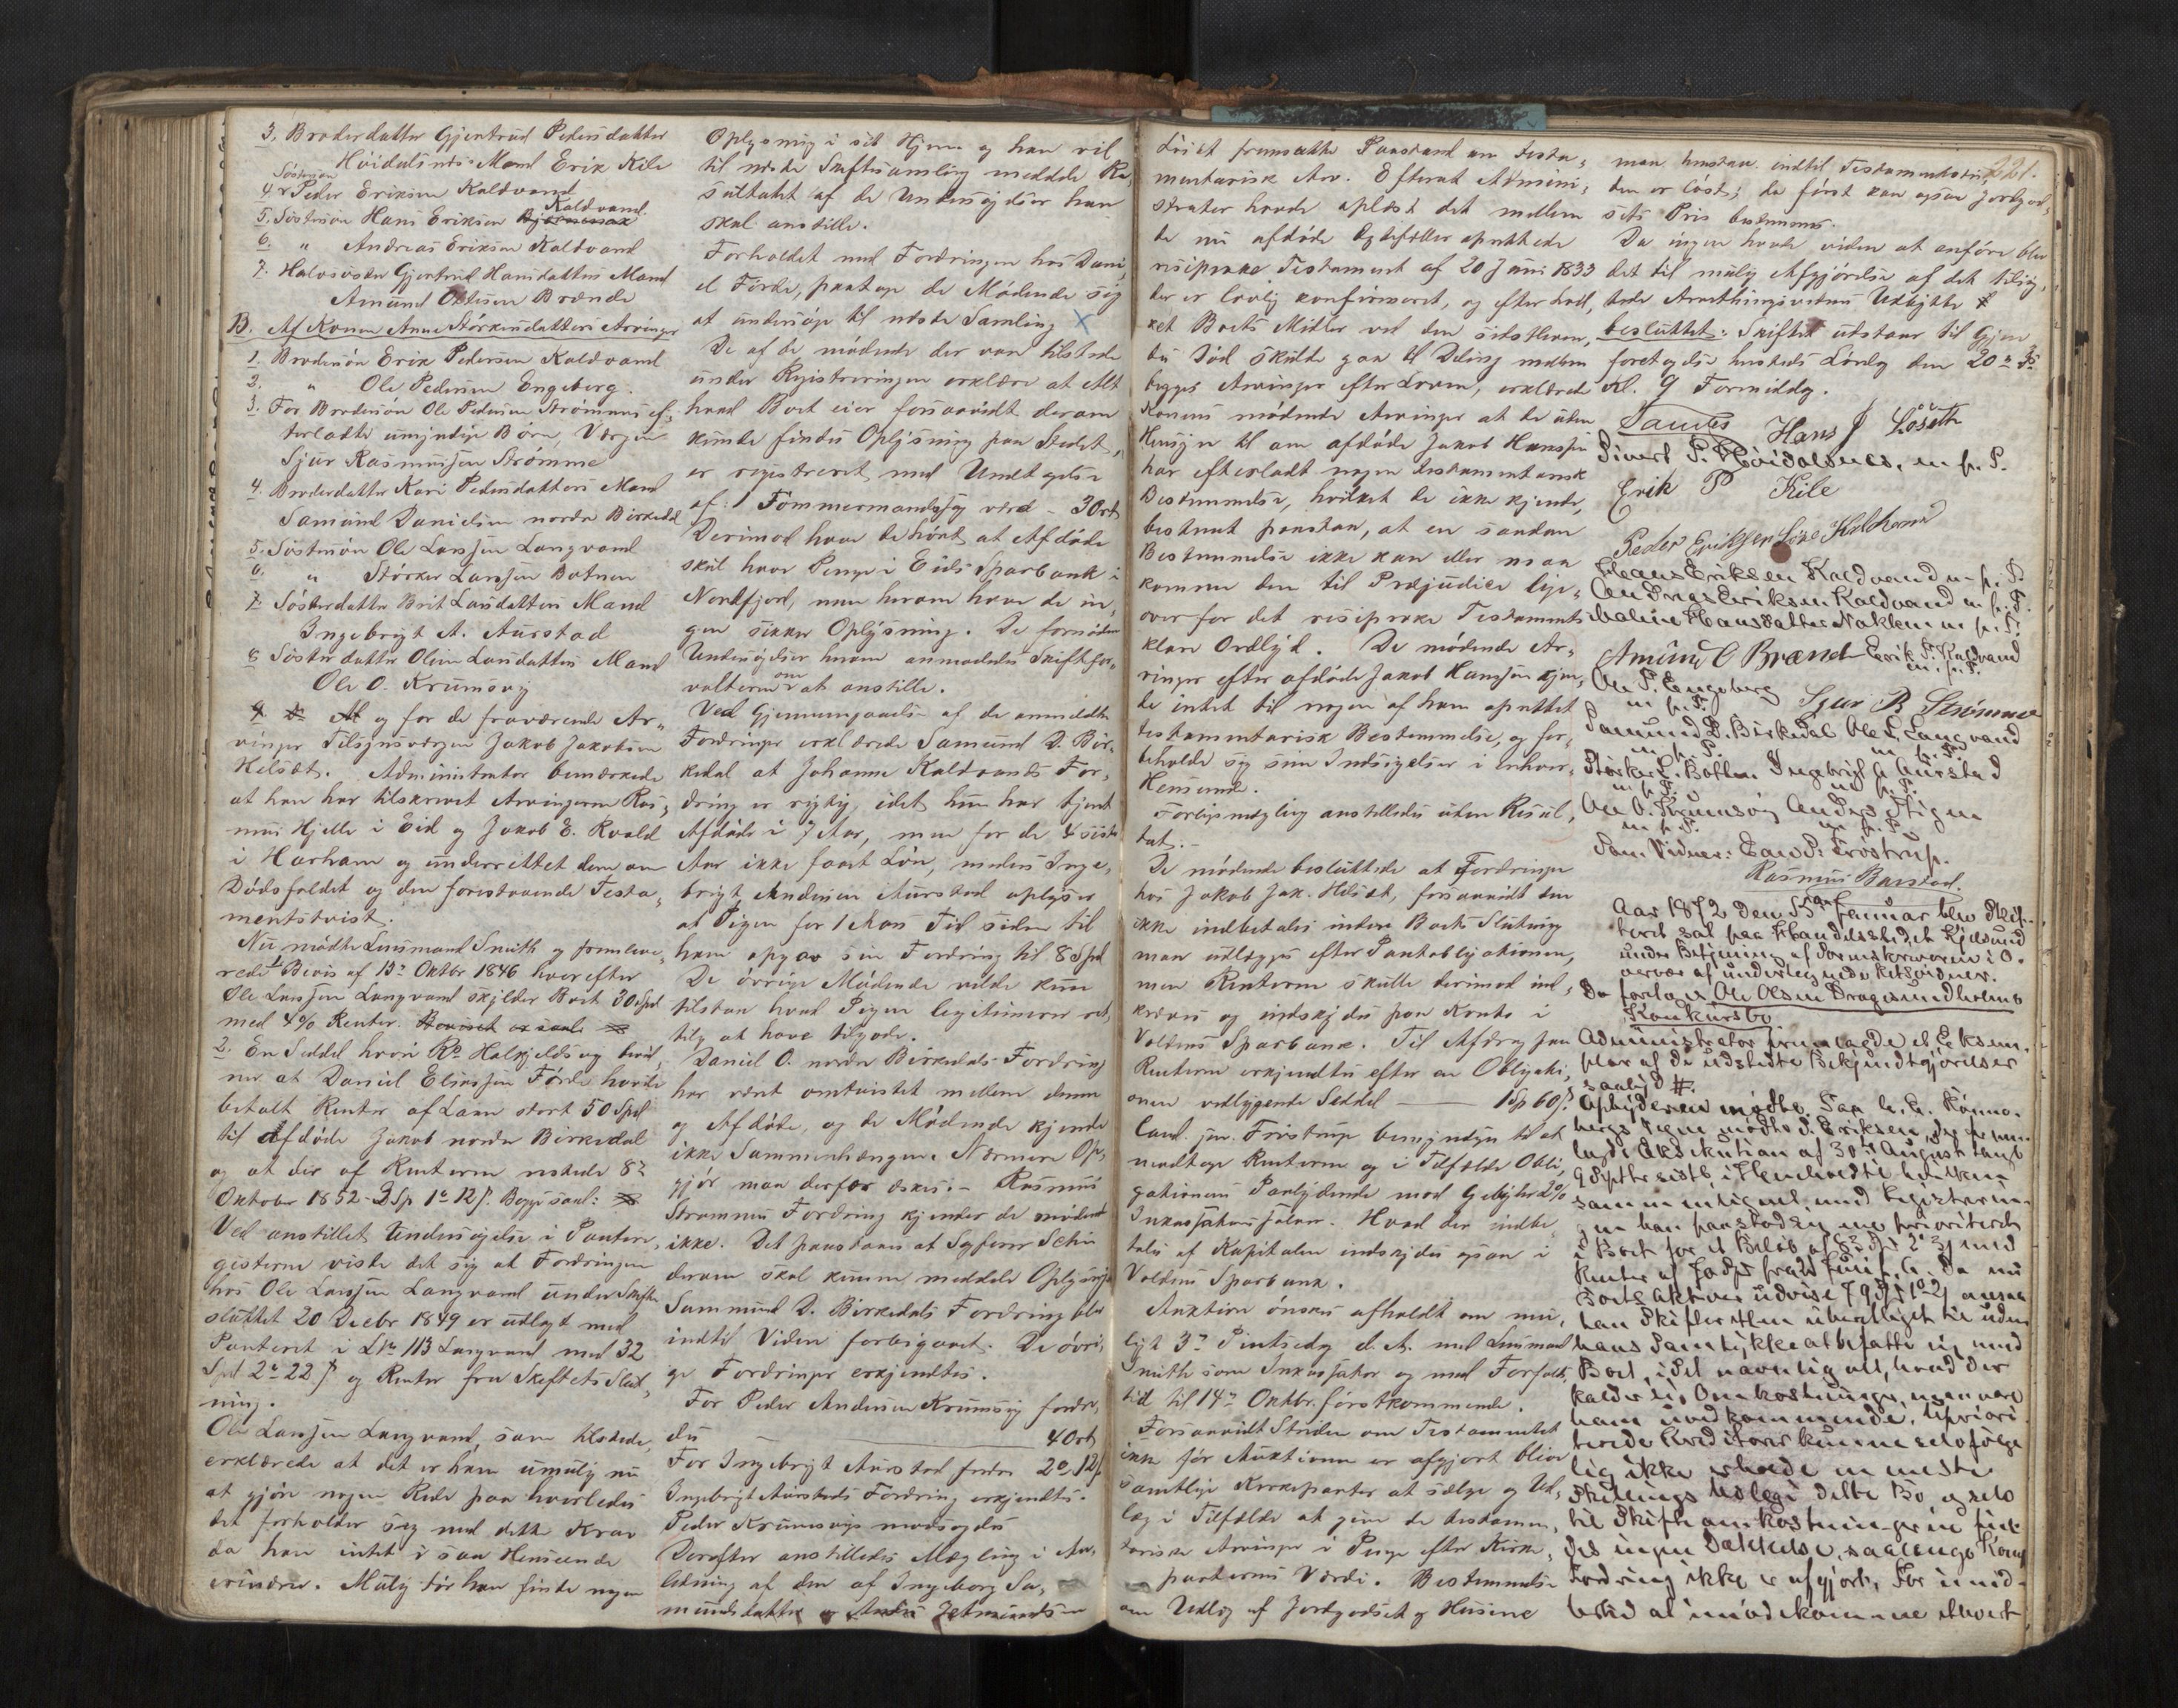 3. Broderdatter Gjertrud Pedersdatter
Höidalsnes's Mand Erik Kile
Söstersön
4. Peder Eriksen Kaldvand
Kaldvand.
5. Söstersön Hans Eriksen
6. " Andreas Eriksen Kaldvand
7. Halvsöster Gjertrud Hansdatters Mand
Amund Brænde
B. Af Konen Anne Störkersdatters Arvinger
1. Brodersön Erik Pedersen Kaldvand
2. " Ole Pedersen Engeberg.
3. For Brodersön Ole Pedersen Strömmes ef-
terladte umyndige Börn, Værgen
Sjur Rasmussen Strömme
4. Broderdatter Kari Pedersdatters Mand
Samund Danielsen nordre Birkedal
5. Söstersön Ole Larssen Langvand
6. " Störker Larssen Botnen
7. Sösterdatter Brit Larsdatters Mand
Ingebrigt A. Aurstad
8. Sösterdatter Oline Larsdatters Mand
Ole O. Krumsvig
og for de fraværende Ar-
vinger Tilsynsværgen Jakob Jakobsen
Helsæt. Administrator bemærkede
at han har tilskrevet Arvingerne Ras-
mus Hjelle i Eid og Jakob E. Kvald
i Harham og underrettet dem om
Dödsfaldet og den forestaaende Testa-
mentstvist.
Nu mödte Lensmand Smith og fremleve-
rede 1. Bevis af 13de Oktbr 1846 hvorefter
Ole Larssen Langvand skylder Boet 30 Spd
med 4% Renter.
2. En Seddel hvori Rs Halkjeldsvig bevid-
ner at Daniel Eliassen Förde havde
betalt Renter af Laan stort 50 Spd
til afdöde Jakob nordre Birkedal
og at der af Renterne resterede 8de
Oktober 1852 - 3 Sp 1 12 s. Begge saal:
Ved anstillet Undersögelse i Pantere-
gisterne viste det sig at Fordringen
hos Ole Larssen Langvand under Skifte
sluttet 20 Decbr 1849 er udlagt med
Panteret i LNo 113 Langvand med 32
Spd 2 22 s og Renter fra Skiftets Slut-
ning.
Ole Larssen Langvand, som tilstede,
erklærede at det er ham umulig nu
at gjöre nogen Rede paa hvorledes
det forholder sig med dette Krav
da han intet i saa Henseende
erindrer. Mulig tör han finde nogen
Oplysning i sit Hjem og han vil
til næste Skiftesamling meddele Re-
sultatet af de Undersögelser han
skal anstille.
Forholdet med Fordringen hos Dani-
el Förde, paatog de Mödende sig
at undersöge til næste Samling X
De af de mödende der vare tilstede
under Registreringen erklære at Alt
hvad Boet eier forsaavidt derom
kunde findes Oplysning paa Stedet,
er registreret med Undtagelse
af: 1 Tömmermandssag værd - 30 s
Derimod have de hört at Afdöde
skal have Penge i Eids Sparbank i
Nordfjord, men herom have de in-
gen sikker Oplysning. De fornödne
Undersögelser herom anmodedes Skiftefor-
valteren om at anstille.
Ved Gjennemgaaelse af de anmeldte
Fordringer erklærede Samund D. Bir-
kedal at Johanne Kaldvands For-
dring er rigtig, idet hun har tjent
Afdöde i 7 Aar, men for de 4 sidste
Aar ikke faaet Lön, medens Inge-
brigt Andersen Aurstad oplyser
at Pigen for 1 Aars Tid siden til
ham opgav sin Fordring til 8 Spd
De övrige Mödende vilde kun
tilstaa hvad Pigen legitimerer ret-
telig at have tilgode.
Daniel O. nordre Birkedals Fordring
har været omtvistet mellem denne
og Afdöde, og de Mödende kjende
ikke Sammenhængen. Nærmere Op-
gjör maa derfor æskes. - Rasmus
Strömmes Fordring kjender de mödende
ikke. Det paastaaes at Sagförer
derom skal kunne meddele Oplysning
Sammund D. Birkedals Fordring blev
indtil Videre forbigaaet. De övri-
ge Fordringer erkjendtes.
For Peder Andersen Krumsvig fordre-
des — 4 Ort
For Ingebrigt Aurstad fordres 2 12 s
Ingebrigt Aurstads Fordring erkjendtes.
Peder Krumsvigs modsagdes
Derefter anstilledes Mægling i An-
ledning af den af Ingeborg Sa-
mundsdatter og
tvist fremsatte Paastand om testa-
mentarisk Arv. Efterat Admini-
strator havde oplæst det mellem
de nu afdöde Ægtefæller oprettede
reciproke Testament af 20 Juni 1833
der er lovlig konfirmeret, og efter hvil-
ket Boets Midler ved den sidstleven-
des Död skulde gaa til Deling mellem
begges Arvinger efter Loven, erklærede
Konens mödende Arvinger at de uden
Hensyn til om afdöde Jakob Hanssen
har efterladt nogen testamentarisk
Bestemmelse, hvilket de ikke kjende,
bestemt paastaa, at en saadan
Bestemmelse ikke kan eller maa
komme dem til Præjudice lige-
over for det reciproke Testaments
klare Ordlyd. De mödende Ar-
vinger efter afdöde Jakob Hanssen kjen-
de intet til nogen af ham oprettet
testamentarisk Bestemmelse, og for-
beholde sig sine Indsigelser i enhver
Henseende.
Forligsmægling anstilledes uden Resul-
tat. -
De mödende besluttede at Fordringen
hos Jakob Jak. Helsæt, forsaavidt den
ikke indbetales inden Boets Slutning
maa udlægges efter Pantobligationen,
men Renterne skulle derimod ind-
kræves og indskydes paa Konto i
Voldens Sparbank. Til Afdrag paa
Renterne erkjendtes efter en Obligati-
onen vedliggende Seddel — 1 Sp 60 s.
Cand. jur. Fröstrup bemyndiges til at
modtage Renterne og i Tilfælde Obli-
gationens Paalydende mod Gebyhr 2%
Inkassationssalær. Hvad der indbe-
tales af Kapitalen indskydes ogsaa i
Voldens Sparbank.
Auktion önskes afholdt om mu-
ligt 3die Pintsedag d. A. med Lensmand
Smith som Inkassator og med Forfalds-
tid til 14de Oktbr. förstkommende.
Forsaavidt Striden om Testamentet
ikke för Auktionen er afgjort blive
samtlige Kirkeparter at sælge og Ud-
læg i Tilfælde at give de testamen-
tariske Arvinger i Penge efter Kirke-
parternes Værdi. Bestemmelse
om Udlæg af Jordgodset og Husene
221.
maa henstaa indtil Testamentstvi-
sten er löst; da först kan ogsaa Jordgod-
sets Pris bestemmes.
Da ingen havde videre at anföre blev
det til mulig Afgjörelse af det tilsig-
tede Arvethingsvidnes Udbytte
besluttet: Skiftet udstaar til Gjen-
foretagelse hersteds Löverdag den 20de ds
Kl. 9 Formiddag.
Landes Hans J Löseth
Sivert P. Höidalsnes, m. p. P.
Erik P Kile
Peder Eriksen Kaldvand
Hans Eriksen Kaldvand m. p. P.
Andreas Eriksen Kaldvand m. p. P.
Hansdatter Naklen m. p. P.
Amund O Brænd Erik P. Kaldvand
m. p. P.
Ole P. Engeberg Sjur R Strømme
m. p. P.
Samund D. Birkedal Ole L. Langvand
m. p. P. m. p. P.
Størker L. Botten Ingebrigt A Aurstad
m. p. P. m. p. P.
Ole O. Krumsvig Anders Stigen
m. p. P. m. p. P.
Som Vidner: Fröstrup.
Rasmus Barstad.
Aar 1872 den Januar blev Skif-
teret sat paa Handelsstedet
under Betjening af Sorenskriveren i O-
vervær af undertegnede Retsvidner.
Da foretoges Ole Olsen Dragesundholms
Konkursbo
Administrator fremlagde et Eksem-
plar af de udstedte Bekjendtgjörelser
saalyd #.
mödte. For
mödte J. Eriksen, der frem-
lagde Eksekution af 30te August samt
9 Septbr sidstl.
sammenlignet med Registerin-
gen han paastod sig prioriteret
i Boet for et Belöb af
Renter af Da nu
Boets Aktiver udvise ansaa
han Skifteretten uberettiget til uden
hans Samtykke at befatte sig med
Boet, idet navnlig alt, hvad der
kaldes Omkostninger, maa være
ham uvedkommende. Upriori-
terede Kreditorer kunne selvfölge-
lig ikke erholde en eneste
Skillings Udlæg i dette Bo, og selv
til Skifteomkostningerne fin-
des ingen Dækkelse, saalænge
Fordring ikke er afgjort. For imid-
lertid at imödekomme ethvert